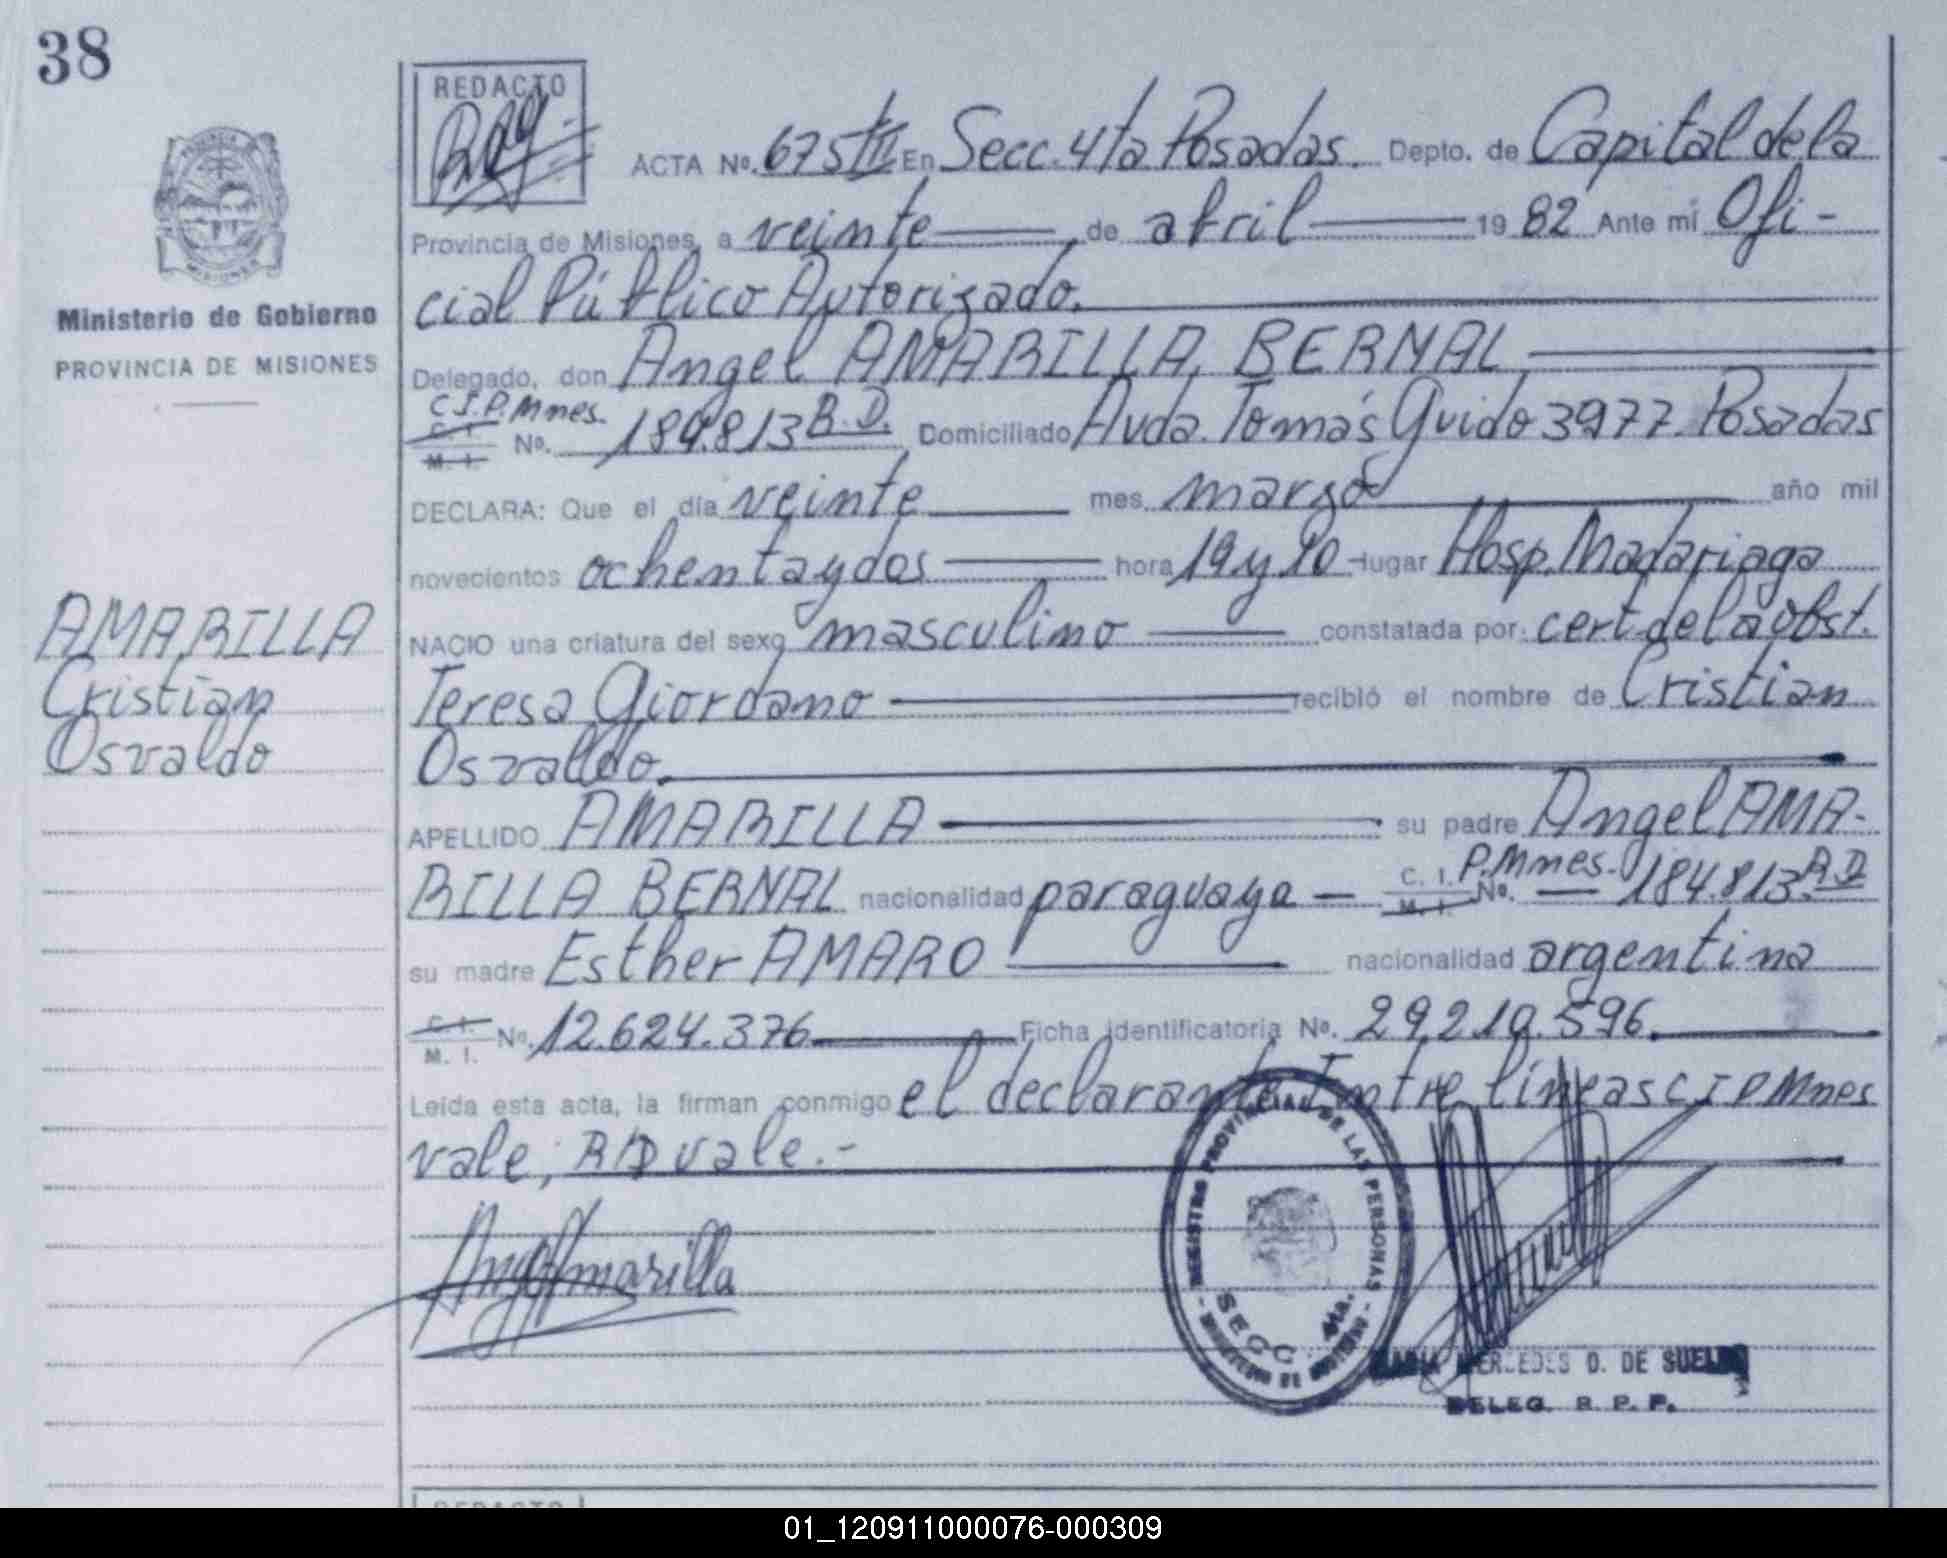 38
REDACTO
ACTA No. 675 tII En Secc. 4ta Posadas. Depto. de Capital de la
Provincia de Misiones, a veinte de abril 1982 Ante mí Ofi-
cial Público Autorizado.
Ministerio de Gobierno
PROVINCIA DE MISIONES
Delegado, don Angel AMARILLA BERNAL
C.I.P.Mnes.
C. I. M. I. No. 184.813 R.D. Domiciliado Avda. Tomás Guido 3977. Posadas
DECLARA: Que el día veinte mes marzo año mil
novecientos ochenta y dos hora 19 y 10 lugar Hosp. Madariaga
NACIO una criatura del sexo masculino constatada por: cert. de la obst.
Teresa Giordano recibió el nombre de Cristian
Osvaldo.
AMARILLA
Cristian
Osvaldo
APELLIDO AMARILLA su padre Angel AMA-
RILLA BERNAL nacionalidad paraguaya C. I. P.Mnes. M. I. No. 184.813 R.D.
su madre Esther AMARO nacionalidad argentina
C. I. M. I. No. 12.624.376 Ficha identificatoria No. 29.210.596.
Leída esta acta, la firman conmigo el declarante Entre líneas C I P Mnes
vale; R/D vale.-
Ang Amarilla
REGISTRO PROVINCIAL DE LAS PERSONAS
SECC. 4ta.
MARIA MERCEDES O. DE SUELDO
DELEG. R. P. P.
REDACTO
01_120911000076-000309